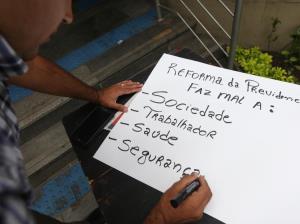 REFORMA da Previdên
FAZ MAL A:
- Sociedade
- Trabalhador
- Saúde
- Segurança